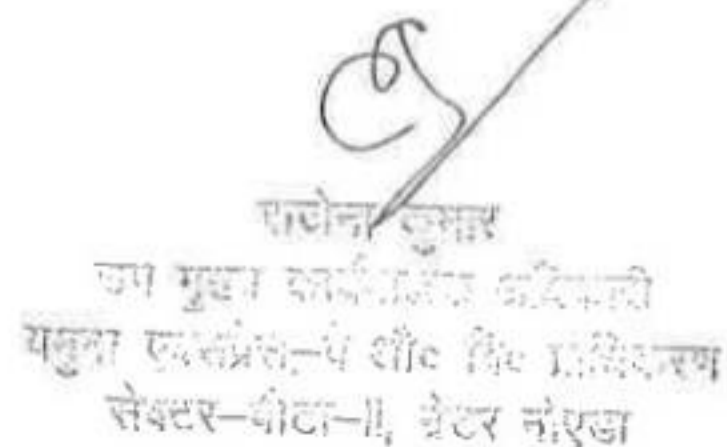 कुमार
उप मुख्य कार्यपालक अधिकारी
यमुना एक्सप्रेस-वे औद्योगिक प्राधिकरण
सेक्टर-बीटा-II, ग्रेटर नोएडा